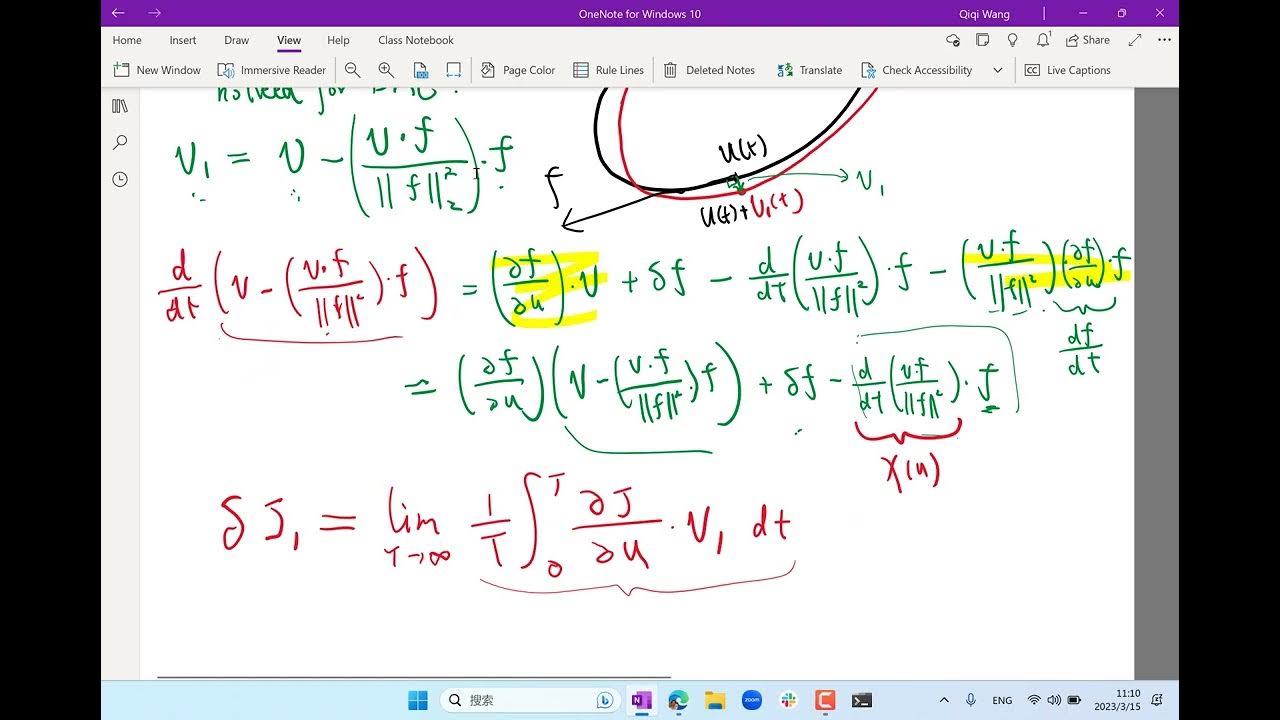 OneNote for Windows 10 Qiqi Wang
Home Insert Draw View Help Class Notebook Share
New Window Immersive Reader Page Color Rule Lines Deleted Notes Translate Check Accessibility Live Captions
v₁ = v - (v·f / ||f||₂²)·f
u(t)
f
v₁
u(t)+v₁(t)
d/dt (v - (v·f / ||f||²)·f) = (∂f/∂u)·v + δf - d/dt (v·f / ||f||²)·f - (v·f / ||f||²)(∂f/∂u)·f
df/dt
= (∂f/∂u)(v - (v·f / ||f||²)·f) + δf - d/dt (v·f / ||f||²)·f
χ(u)
δJ₁ = lim T→∞ 1/T ∫₀ᵀ ∂J/∂u · v₁ dt
搜索 zoom ENG 11:10
2023/3/15